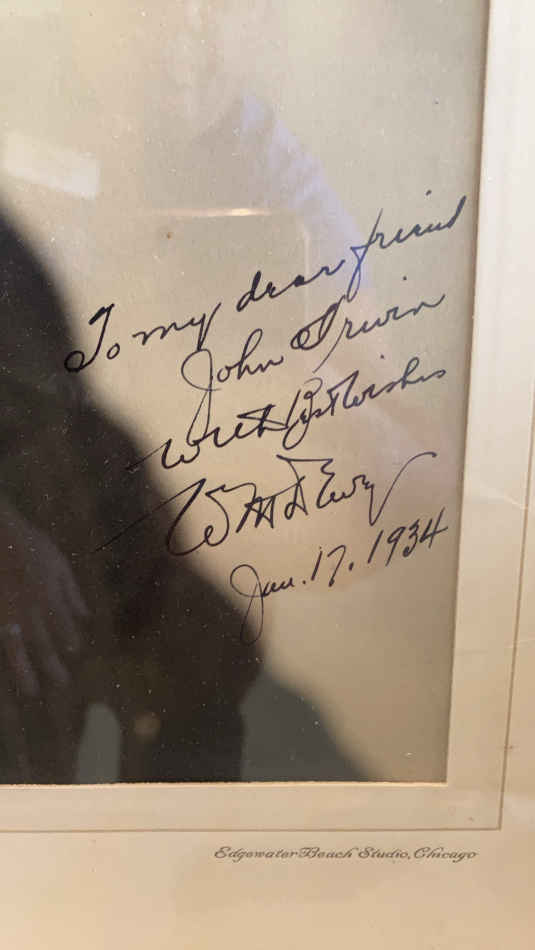 To my dear friend
John Irwin
With Best Wishes
Wm Dewey
Jan. 17, 1934
Edgewater Beach Studio, Chicago